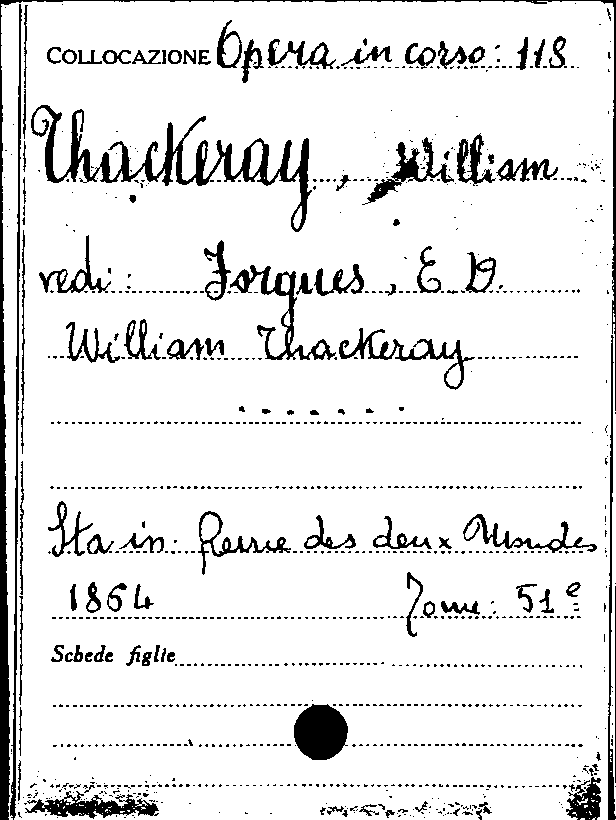 COLLOCAZIONE Opera in corso: 118
Thackeray, William
vedi: Forgues, E. D.
William Thackeray
.......
Sta in: Revue des deux Mondes
1864 Tome: 51e
Schede figlie